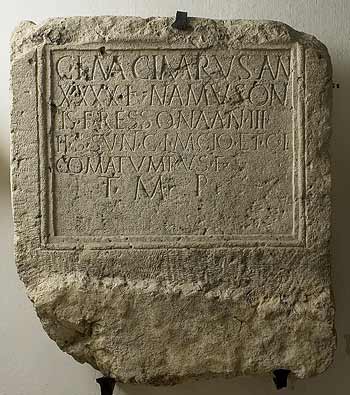 CL MACIMARVS AN
XXXX F NAMVSON
IS F RESSONA AN III
H S SVN ET CL
COMATVMRVS F
T M P